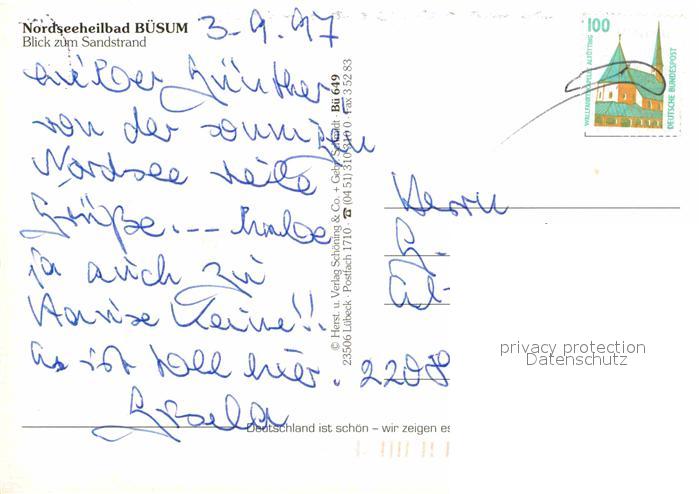 Nordseeheilbad BÜSUM
Blick zum Sandstrand
3.9.97
Lieber Günther
von der sonnigen
Nordsee viele
Grüße. --- habe
ja auch zu
Hause Keine!!
Es ist toll hier.
Gisela
© Herst. u. Verlag Schöning & Co. + Gebr. Schmidt · Bü 649
23506 Lübeck · Postfach 1710 · ☎ (04 51) 310 310 0 · Fax 3 52 83
Deutschland ist schön – wir zeigen es
100
WALLFAHRTSKAPELLE ALTÖTTING
DEUTSCHE BUNDESPOST
Herrn
G.
2208
privacy protection
Datenschutz